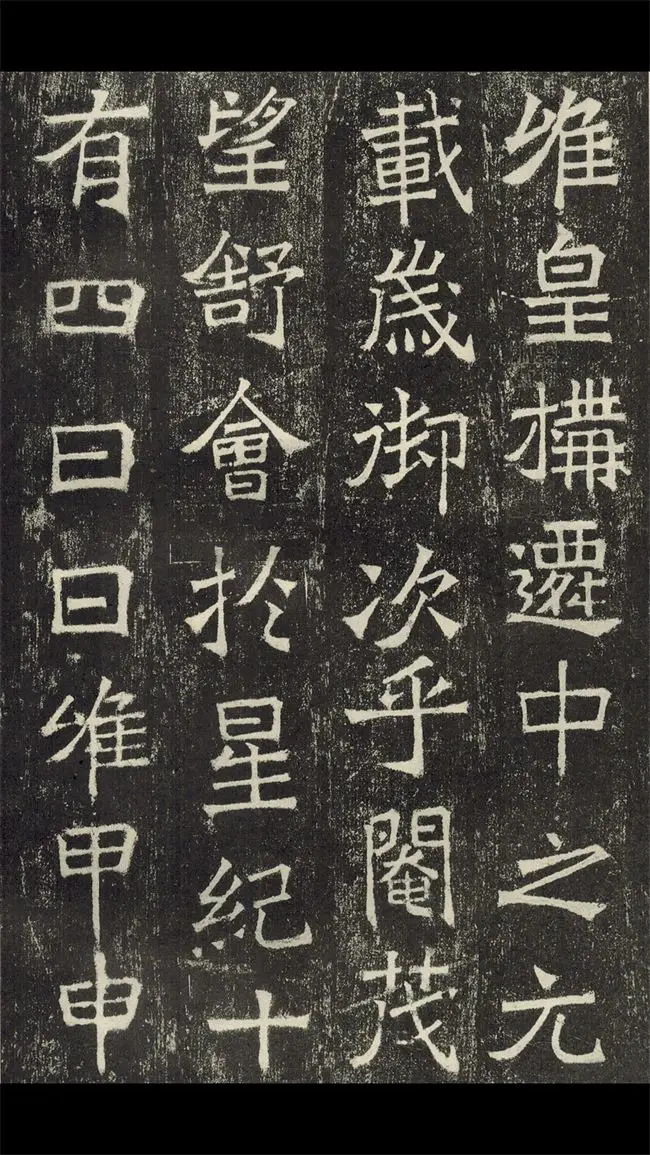 唯皇搆遷中之元
載歲御次乎閹茂
望舒會於星紀十
有四日日唯甲申